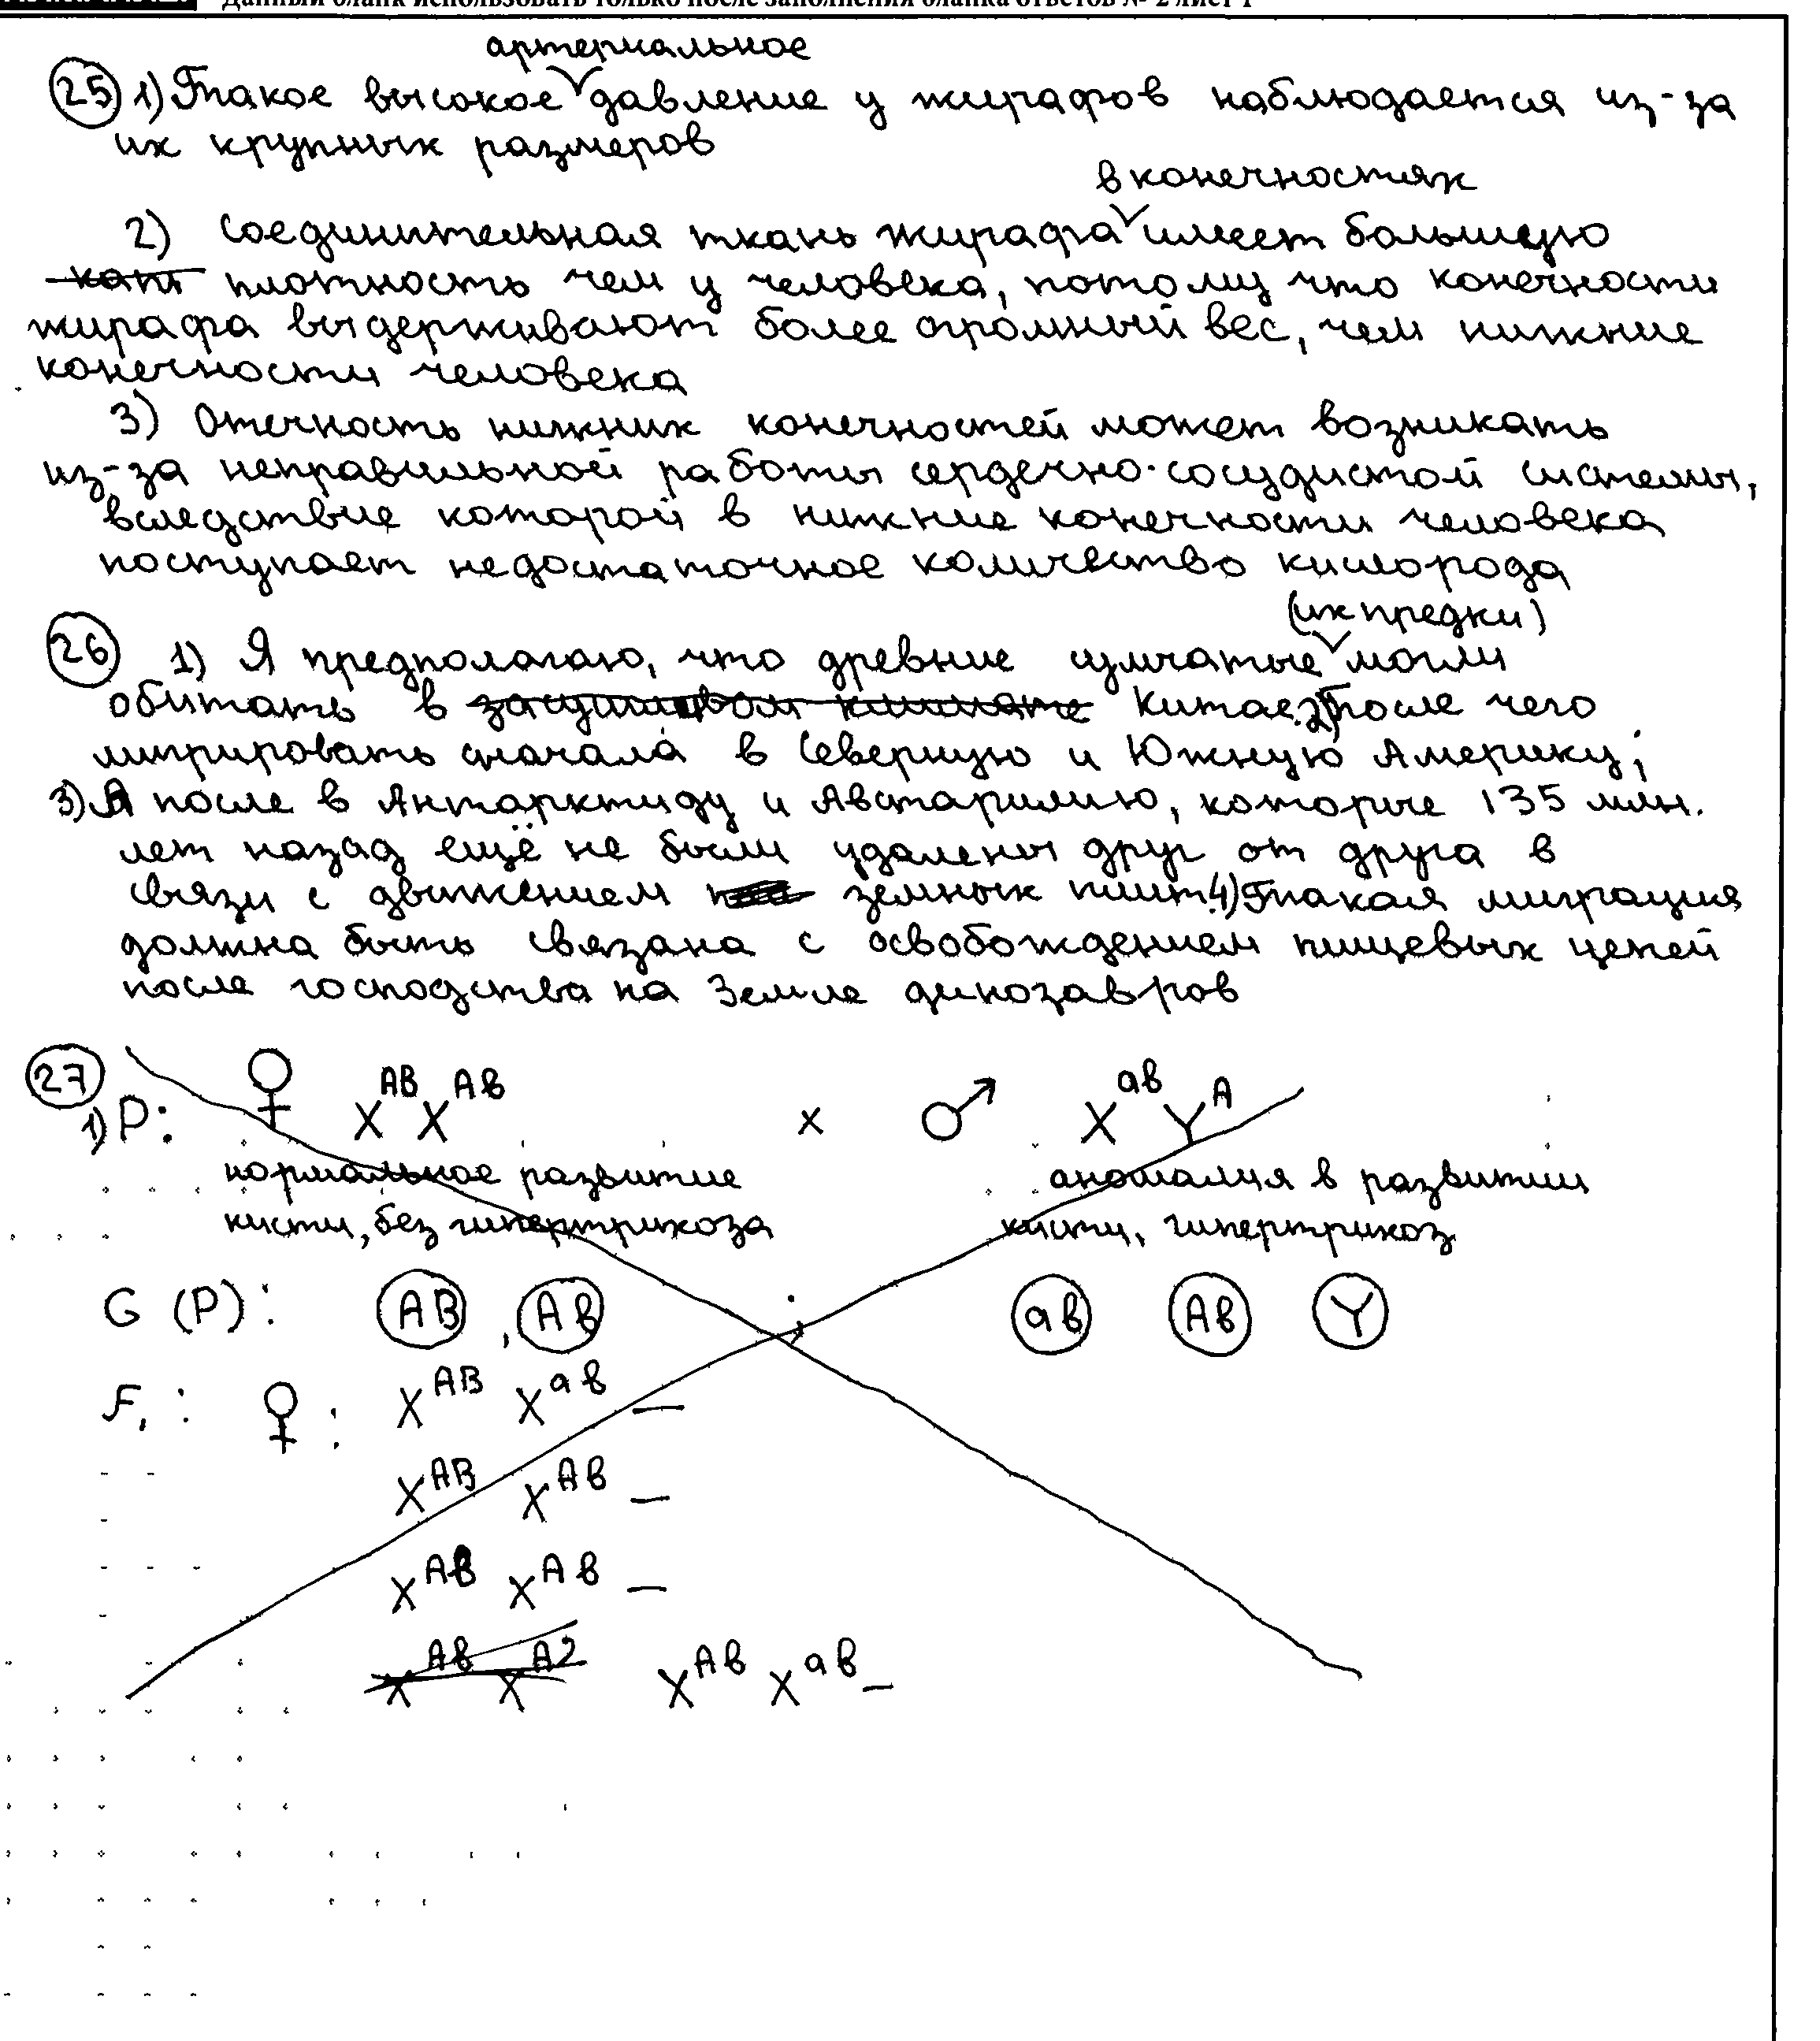 Данный бланк использовать только после заполнения бланка ответов № 2 лист 1
артериальное
25 1) Такое высокое давление у жирафов наблюдается из-за
их крупных размеров
в конечностях
2) Соединительная ткань жирафа имеет большую
плотность чем у человека, потому что конечности
жирафа выдерживают более огромный вес, чем нижние
конечности человека
3) Отечность нижних конечностей может возникать
из-за неправильной работы сердечно-сосудистой системы,
вследствие которой в нижние конечности человека
поступает недостаточное количество кислорода
(их предки)
26 1) Я предполагаю, что древние сумчатые могли
обитать в засушливом климате Китае, 2) после чего
мигрировать сначала в Северную и Южную Америку;
3) А после в Антарктиду и Австаралию, которые 135 млн.
лет назад ещё не были удалены друг от друга в
связи с движением земных плит. 4) Такая миграция
должна быть связана с освобождением пищевых цепей
после господства на Земле динозавров
27
1) P: ♀ X^AB X^Aв x ♂ X^aв Y^A
нормальное развитие аномалия в развитии
кисти, без гипертрихоза кисти, гипертрихоз
G (P): AB, Aв ; aв Aв Y
F1: ♀: X^AB X^aв —
X^AB X^Aв —
X^AB X^Aв —
X^Aв X^aв —